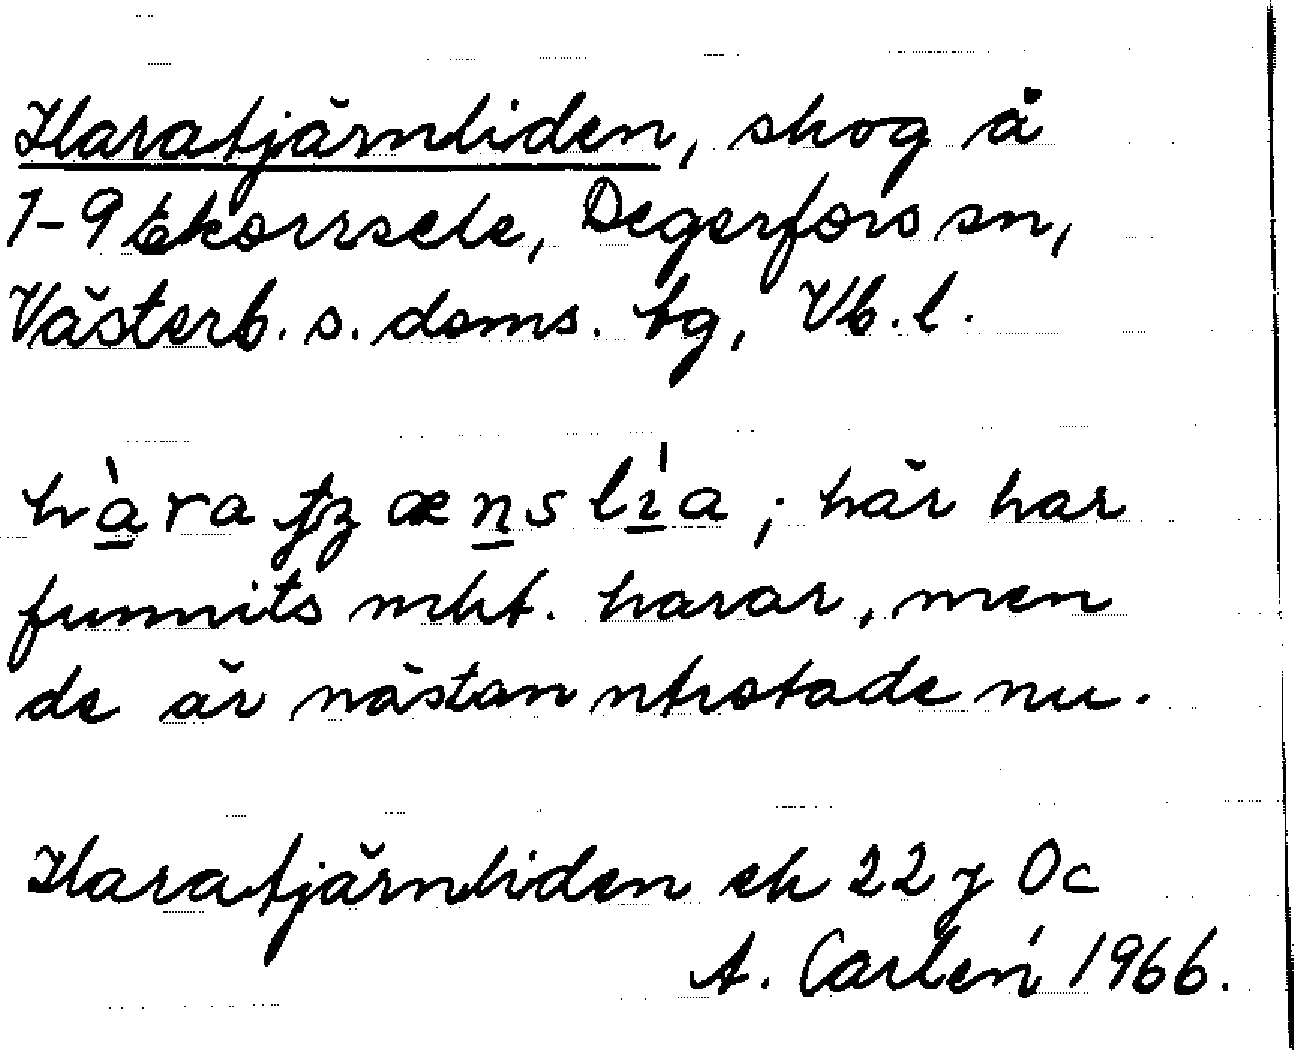 Haratjärnliden, skog å
1-9 Ekorrsele, Degerfors sn,
Västerb. s. doms. tg, Vb. l.
här har
funnits mkt. harar, men
de är nästan utrotade nu.
Haratjärnliden ek 22 j 0c
A. Carlén 1966.